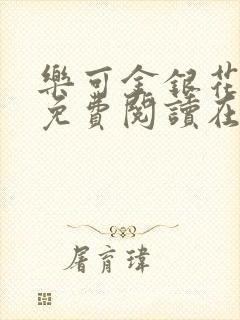 樂可金銀花
免費閱讀在
屠育瑋